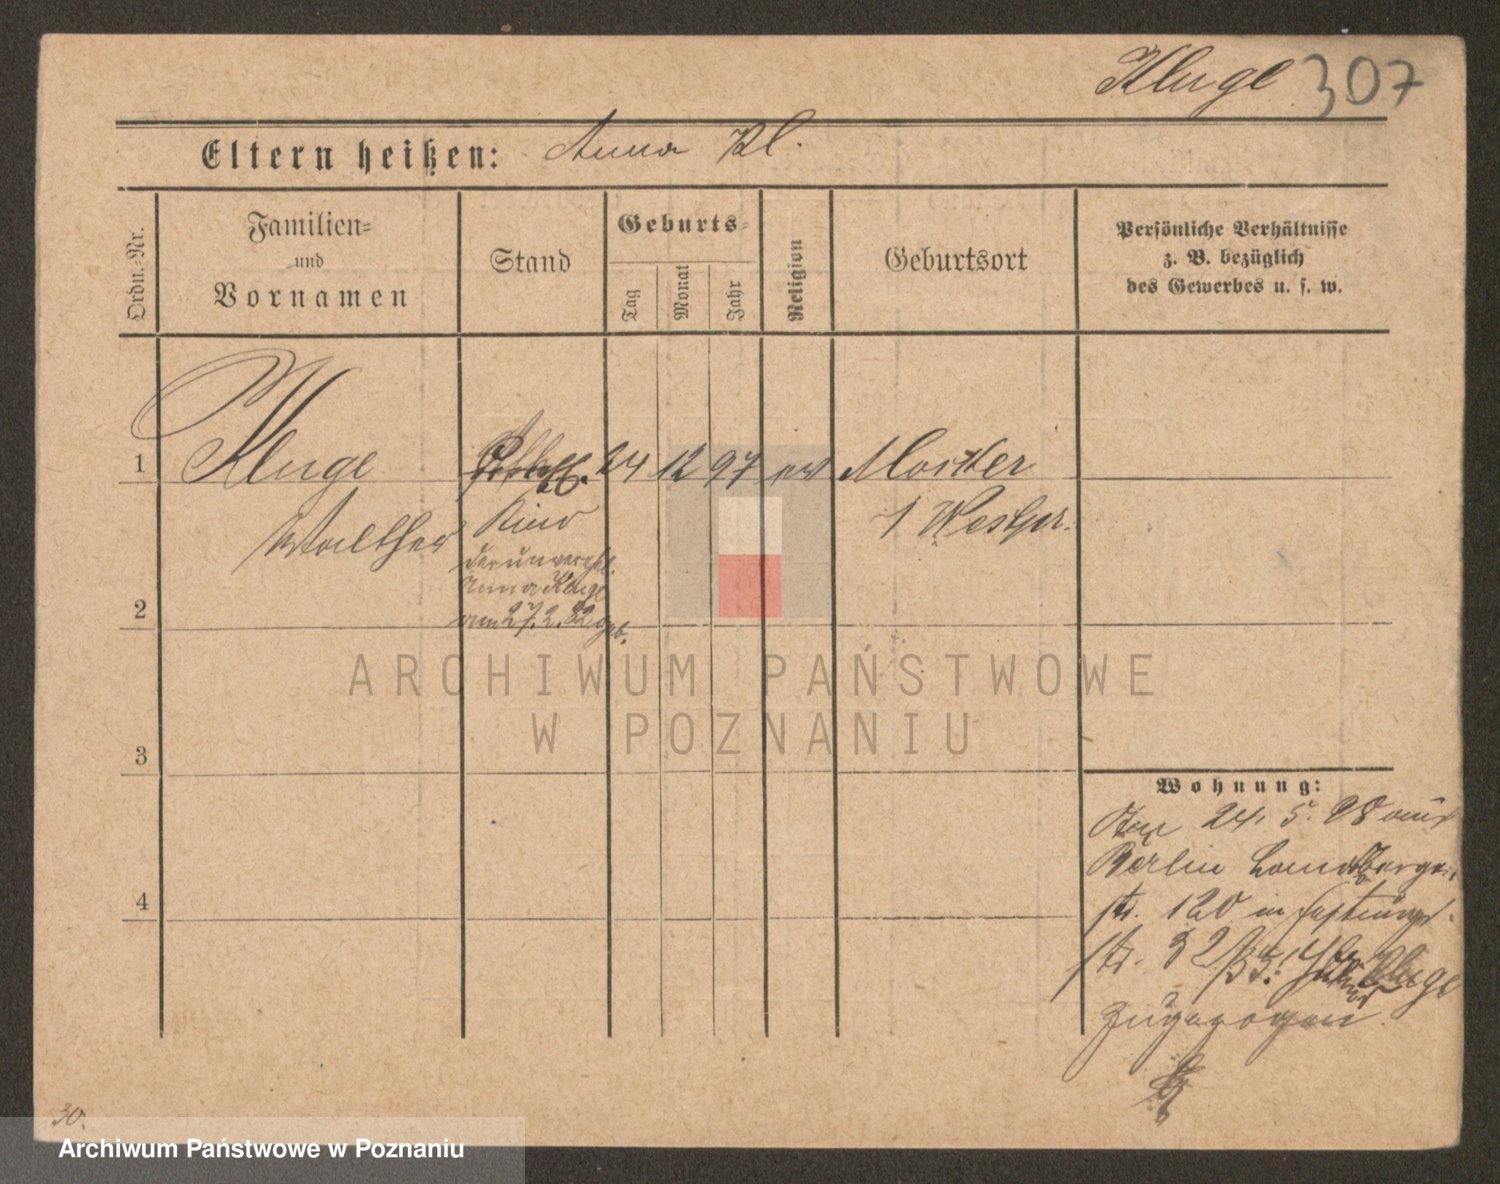 Kluge 307
Eltern heißen: Anna Kl.
Ordn.-Nr.
Familien- und Vornamen
Stand
Geburts-
Tag
Monat
Jahr
Religion
Geburtsort
Persönliche Verhältnisse
z. B. bezüglich
des Gewerbes u. s. w.
1 Kluge 24 12 97 ev Mocker
Walther Kind / Westpr.
der unverehl.
Anna Kluge
2 am 27.2.82 geb.
ARCHIWUM PAŃSTWOWE
W POZNANIU
3
Wohnung:
24. 5. 98 aus
Berlin Landsberger
4 str. 120 in Festungs-
str. 32 Kluge
zugezogen
30.
Archiwum Państwowe w Poznaniu